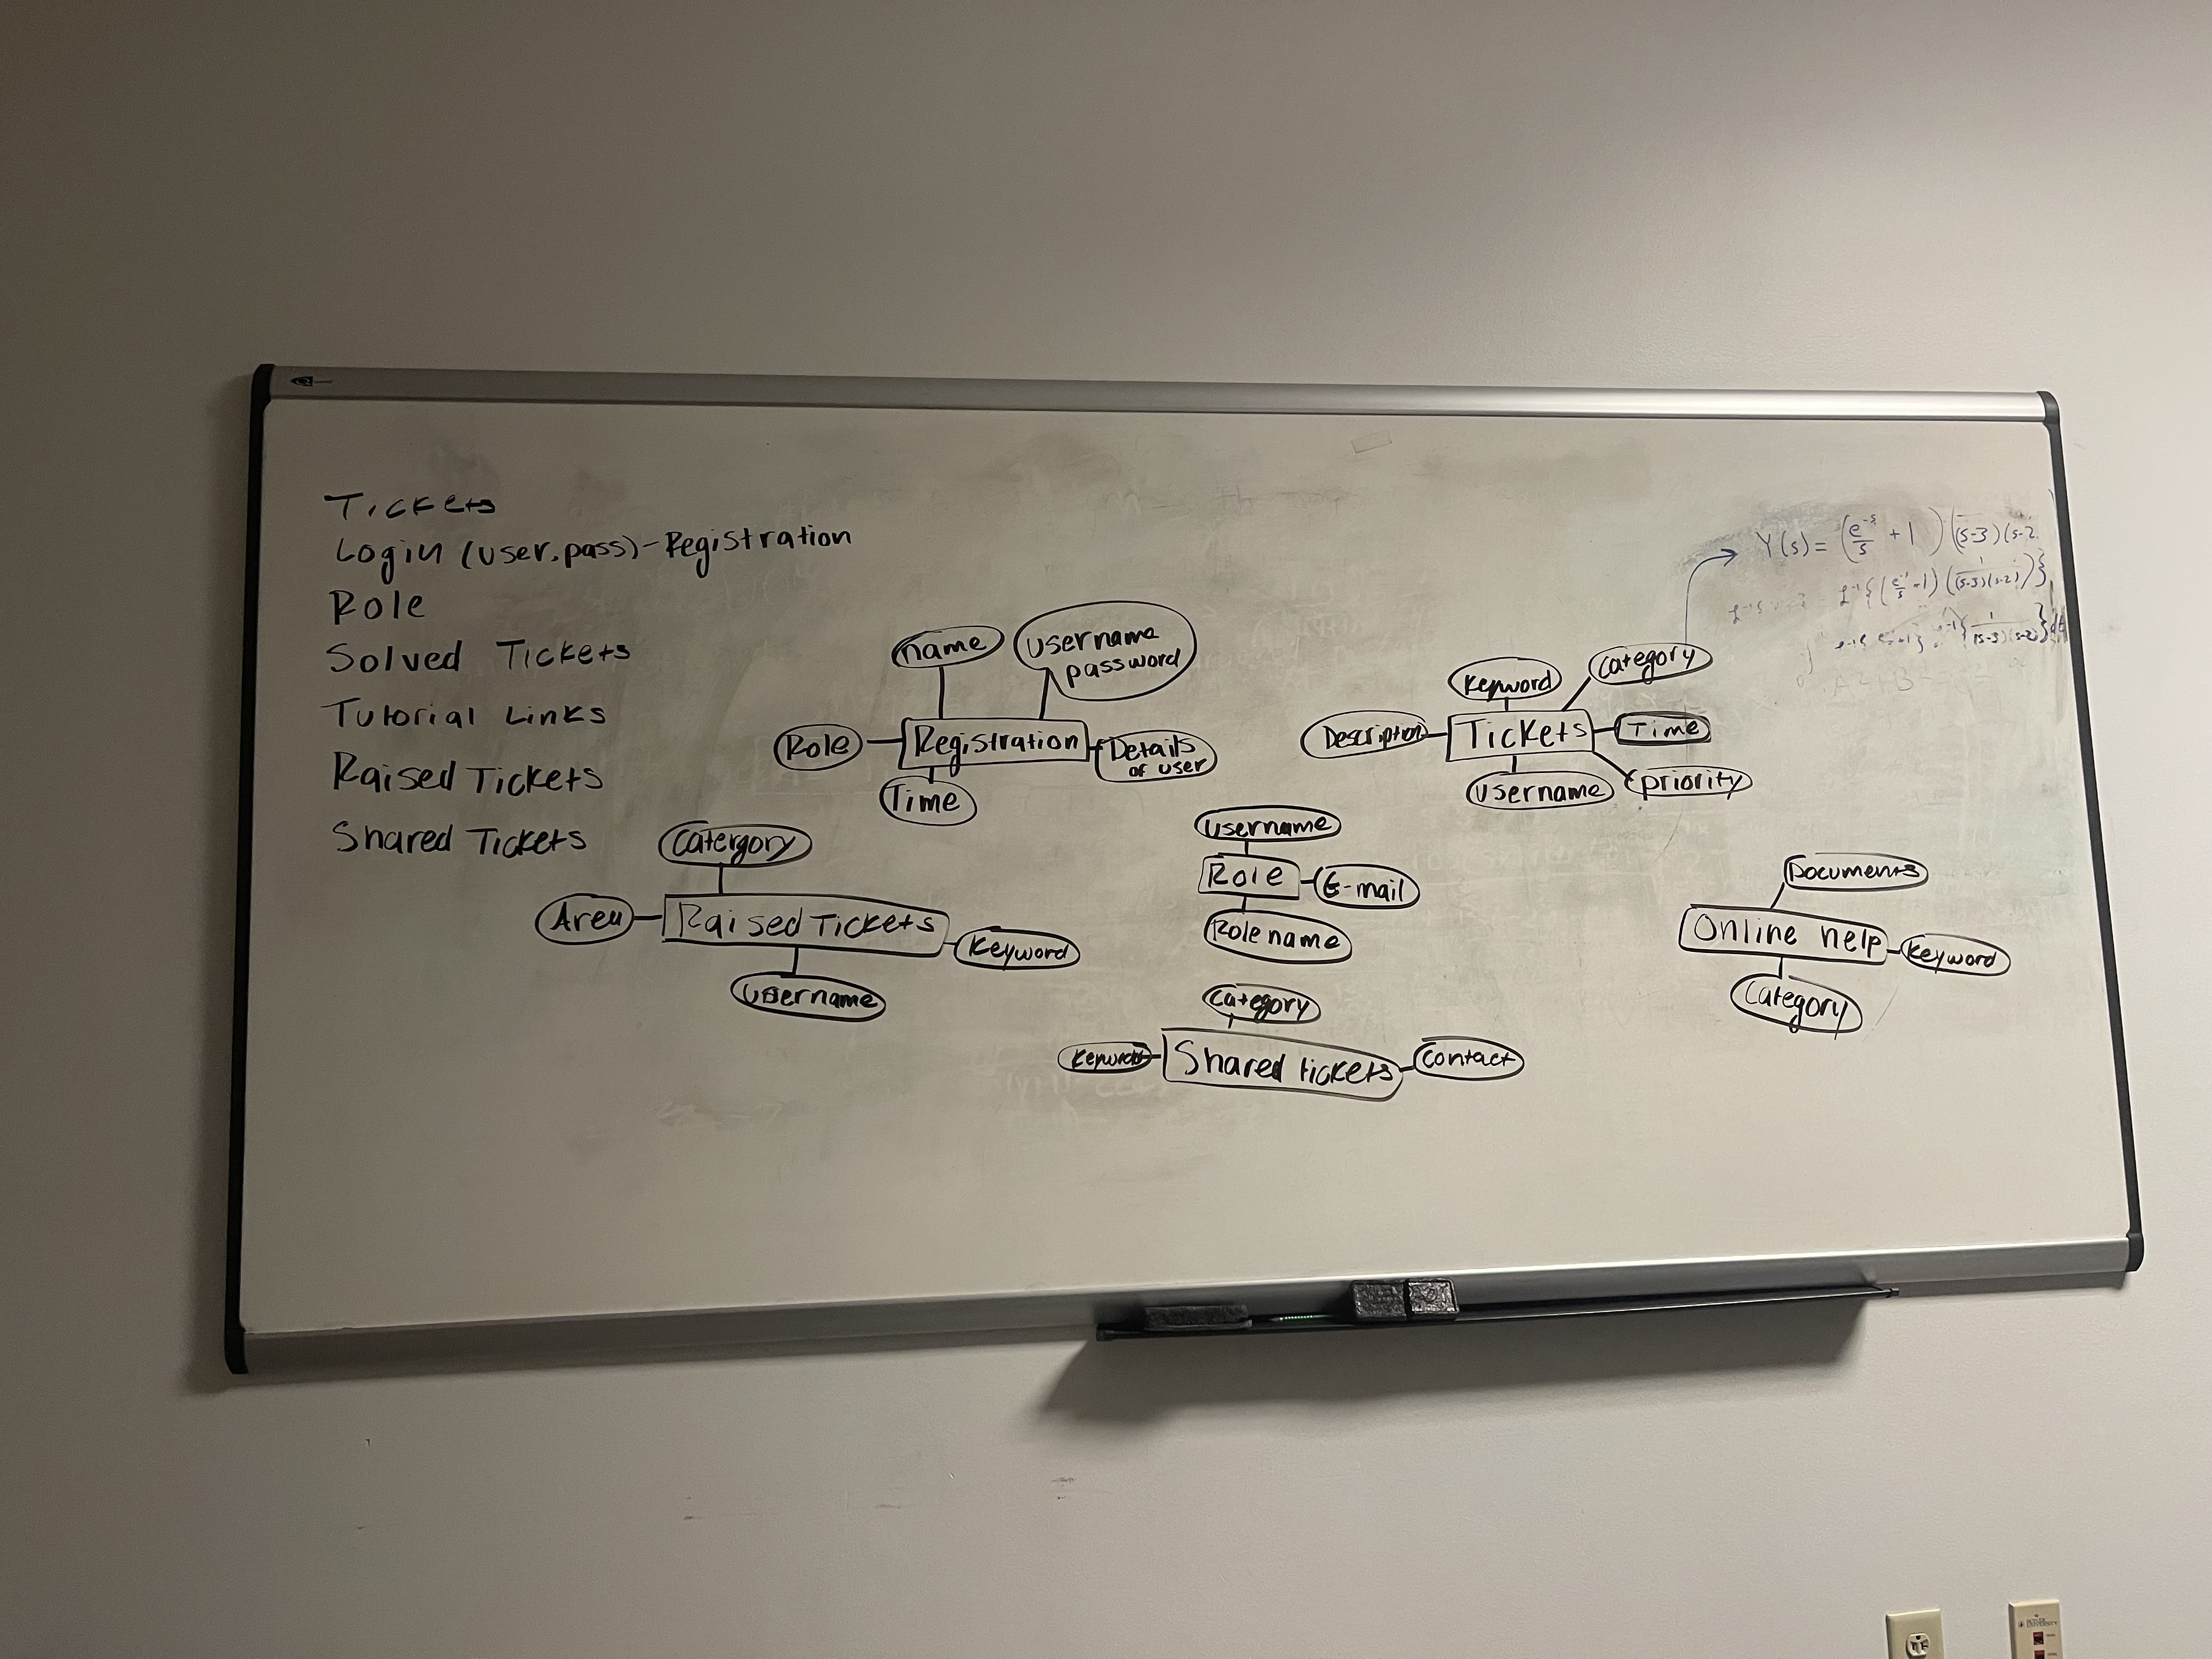 Tickets
Login (user.pass) - Registration
Role
Solved Tickets
Tutorial Links
Raised Tickets
Shared Tickets
name
username
password
Role
Registration
Details
of user
Time
Keyword
Category
Description
Tickets
Time
username
priority
Y(s) = (e^-s/s + 1) 1/(s-3)(s-2
Catergory
Area
Raised Tickets
Keyword
username
username
Role
E-mail
Role name
Documents
Online help
Keyword
Category
Category
Keyword
Shared tickets
Contact